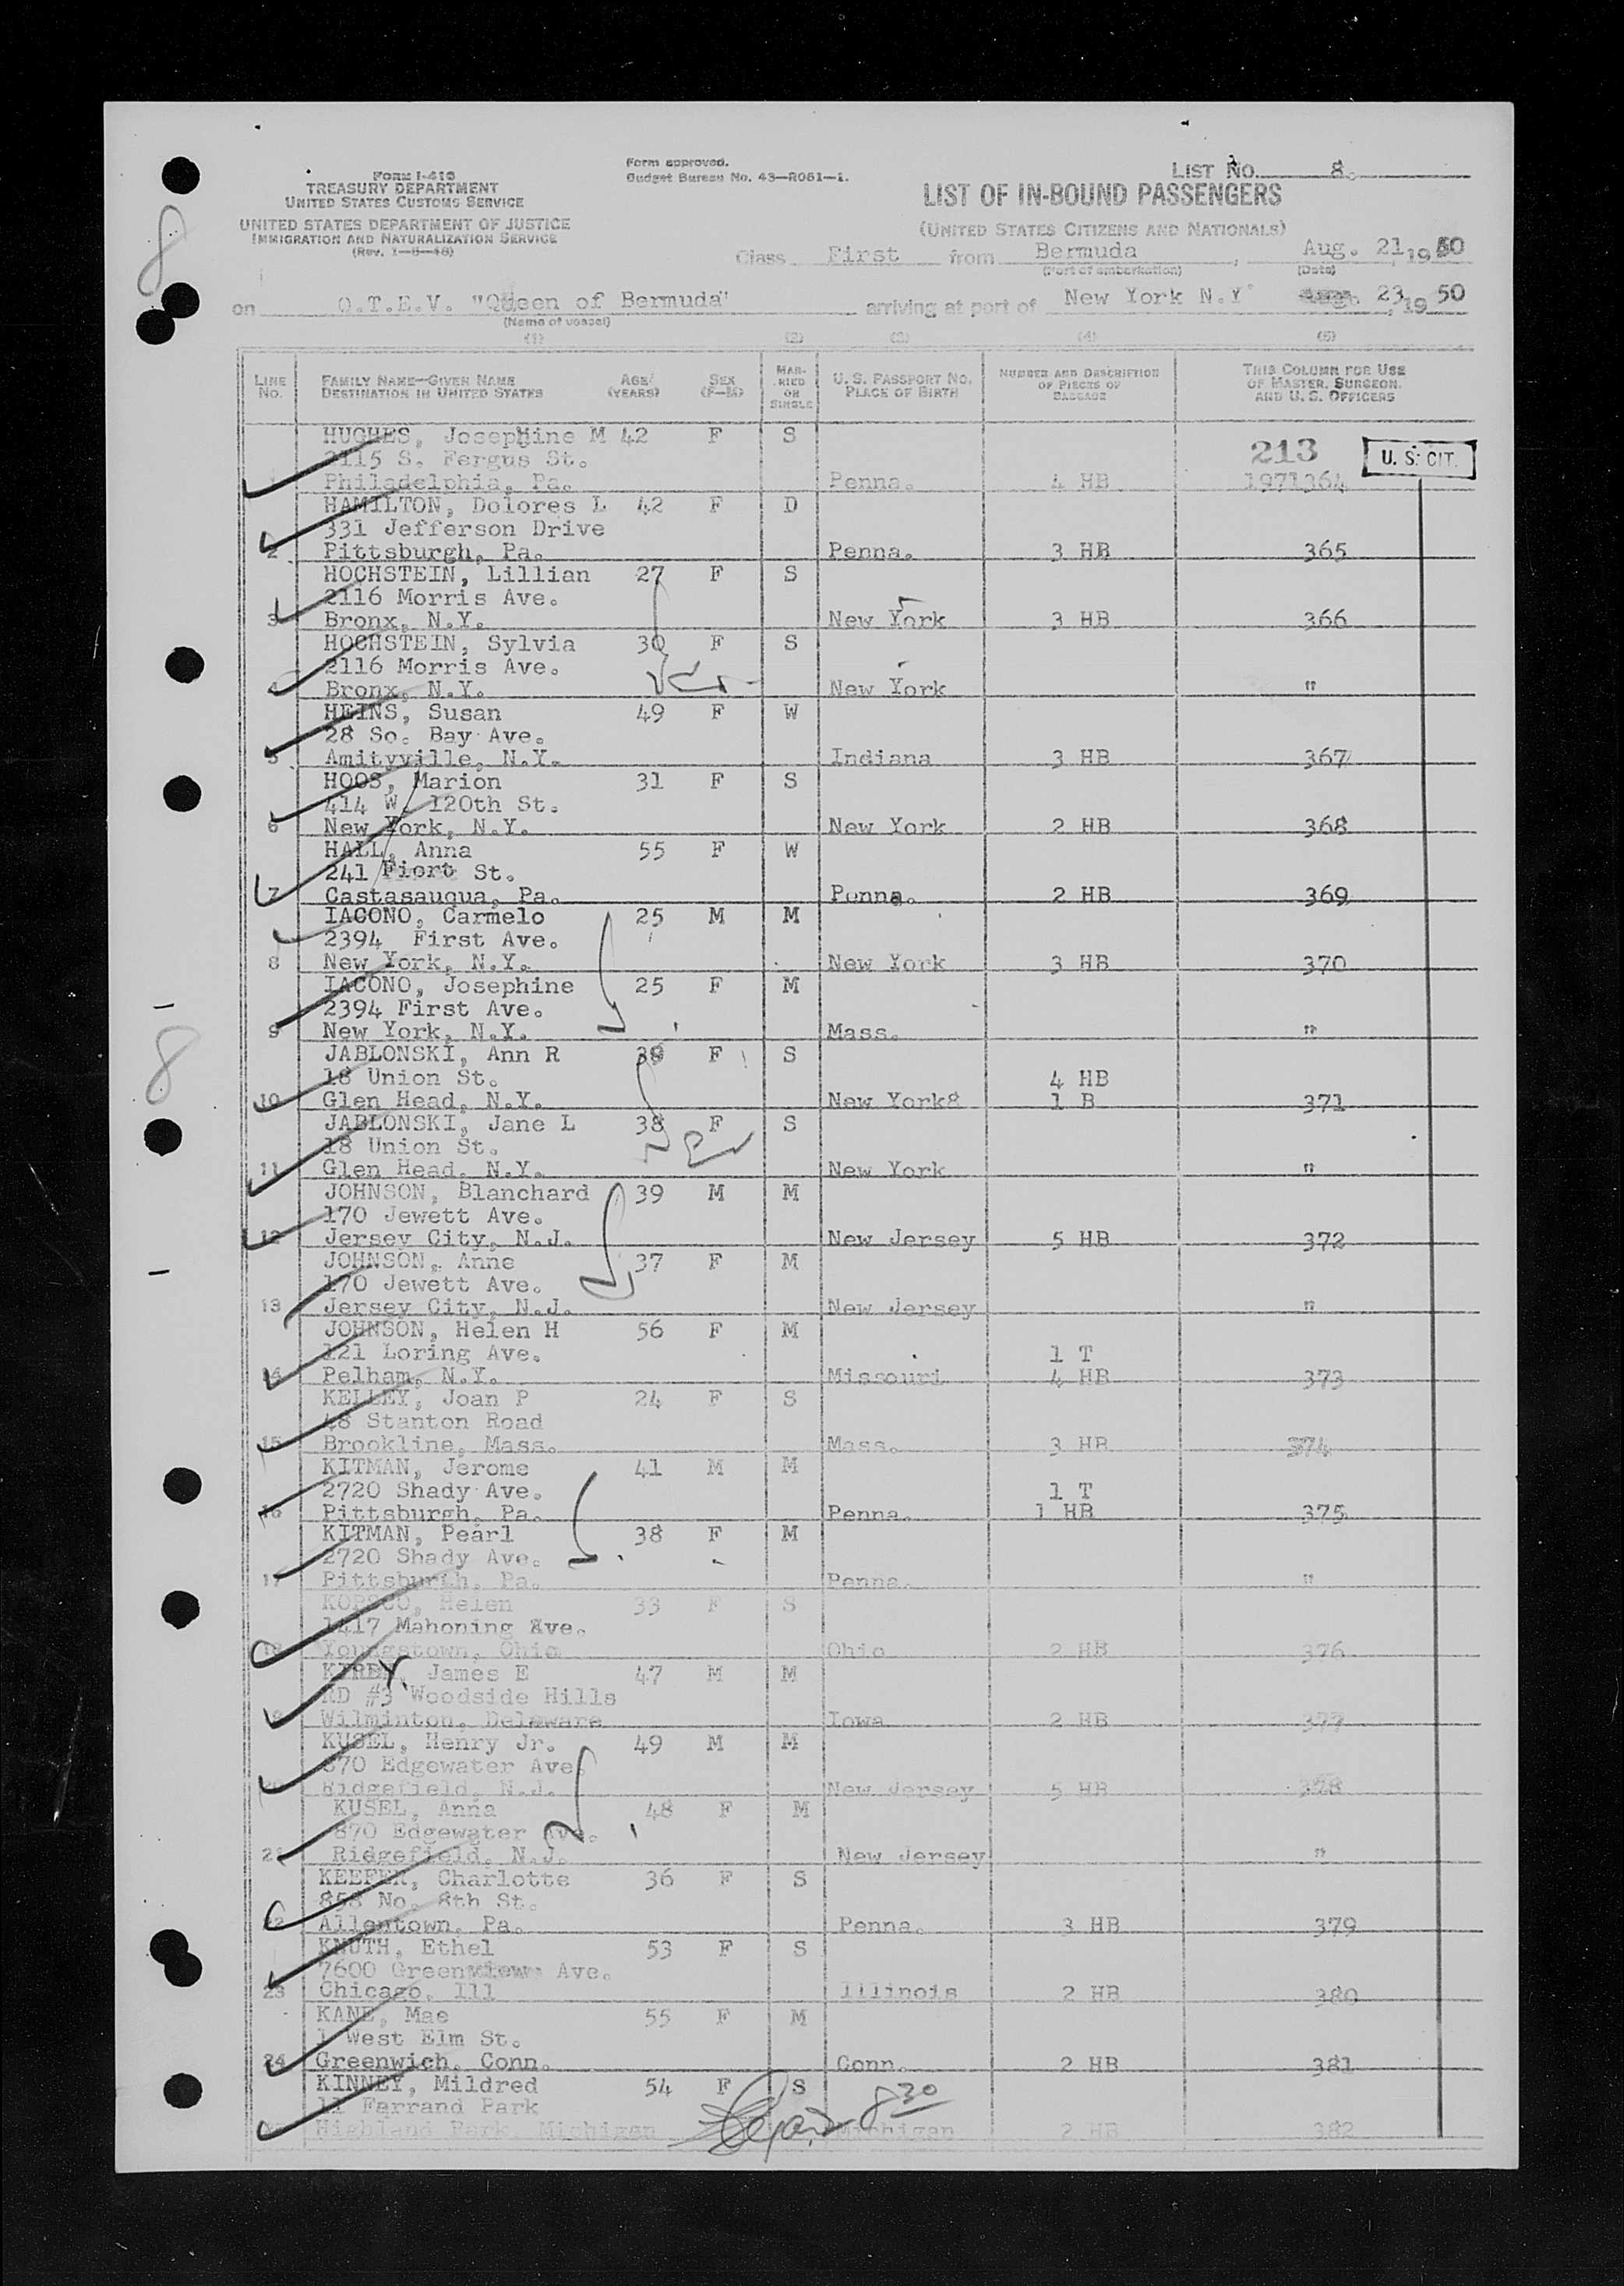 FORM I-418
TREASURY DEPARTMENT
UNITED STATES CUSTOMS SERVICE
UNITED STATES DEPARTMENT OF JUSTICE
IMMIGRATION AND NATURALIZATION SERVICE
Form approved.
Budget Bureau No. 43—R061—1.
LIST NO. 8.
LIST OF IN-BOUND PASSENGERS
(UNITED STATES CITIZENS AND NATIONALS)
Class First from Bermuda, Aug. 21, 1950
(Port of embarkation) (Date)
on Q.T.E.V. "Queen of Bermuda" arriving at port of New York N.Y. 23, 19 50
(Name of vessel)
(1) (2) (3) (4) (5)
LINE No. FAMILY NAME—GIVEN NAME DESTINATION IN UNITED STATES AGE (YEARS) SEX (F—M) MARRIED OR SINGLE U. S. PASSPORT NO. PLACE OF BIRTH NUMBER AND DESCRIPTION OF PIECES OF BAGGAGE THIS COLUMN FOR USE OF MASTER, SURGEON, AND U. S. OFFICERS
HUGHES, Josephine M 42 F S 213 U. S. CIT.
2115 S. Fergus St.
Philadelphia, Pa. Penna. 4 HB 1971364
HAMILTON, Dolores L 42 F D
331 Jefferson Drive
2 Pittsburgh, Pa. Penna. 3 HB 365
HOCHSTEIN, Lillian 27 F S
2116 Morris Ave.
3 Bronx, N.Y. New York 3 HB 366
HOCHSTEIN, Sylvia 30 F S
2116 Morris Ave.
4 Bronx, N.Y. New York "
HEINS, Susan 49 F W
28 So. Bay Ave.
5 Amityville, N.Y. Indiana 3 HB 367
HOOS, Marion 31 F S
414 W. 120th St.
6 New York, N.Y. New York 2 HB 368
HALL, Anna 55 F W
241 Fiort St.
7 Castasauqua, Pa. Penna. 2 HB 369
IACONO, Carmelo 25 M M
2394 First Ave.
8 New York, N.Y. New York 3 HB 370
IACONO, Josephine 25 F M
2394 First Ave.
9 New York, N.Y. Mass. "
JABLONSKI, Ann R 38 F S
18 Union St. 4 HB
10 Glen Head, N.Y. New York& 1 B 371
JABLONSKI, Jane L 38 F S
18 Union St.
11 Glen Head, N.Y. New York "
JOHNSON, Blanchard 39 M M
170 Jewett Ave.
12 Jersey City, N.J. New Jersey 5 HB 372
JOHNSON, Anne 37 F M
170 Jewett Ave.
13 Jersey City, N.J. New Jersey "
JOHNSON, Helen H 56 F M
121 Loring Ave. 1 T
14 Pelham, N.Y. Missouri 4 HB 373
KELLEY, Joan P 24 F S
48 Stanton Road
15 Brookline, Mass. Mass. 3 HB 374
KITMAN, Jerome 41 M M
2720 Shady Ave. 1 T
16 Pittsburgh, Pa. Penna. 1 HB 375
KITMAN, Pearl 38 F M
2720 Shady Ave.
17 Pittsburth, Pa. Penna. "
Helen 33 F S
1417 Mahoning Ave.
18 Youngstown, Ohio Ohio 2 HB 376
KIRBY, James E 47 M M
RD #3 Woodside Hills
Wilminton, Delaware Iowa 2 HB 377
KUSEL, Henry Jr. 49 M M
870 Edgewater Ave.
Ridgefield, N.J. New Jersey 5 HB 378
KUSEL, Anna 48 F M
870 Edgewater Ave.
21 Ridgefield, N.J. New Jersey "
KEEFER, Charlotte 36 F S
858 No. 8th St.
22 Allentown, Pa. Penna. 3 HB 379
KNUTH, Ethel 53 F S
7600 Greenview Ave.
23 Chicago, Ill Illinois 2 HB 380
KANE, Mae 55 F M
1 West Elm St.
24 Greenwich, Conn. Conn. 2 HB 381
KINNEY, Mildred 54 F S
11 Farrand Park
Highland Park, Michigan Michigan 2 HB 382
8
8